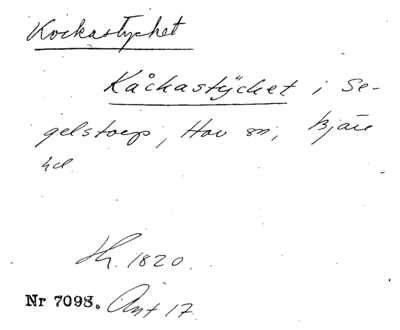 Kockastycket
Kåckastÿcket i Se-
gelstorp, Hov sn, Bjäre
hd
Sk. 1820.
Nr 7098. Ant 17